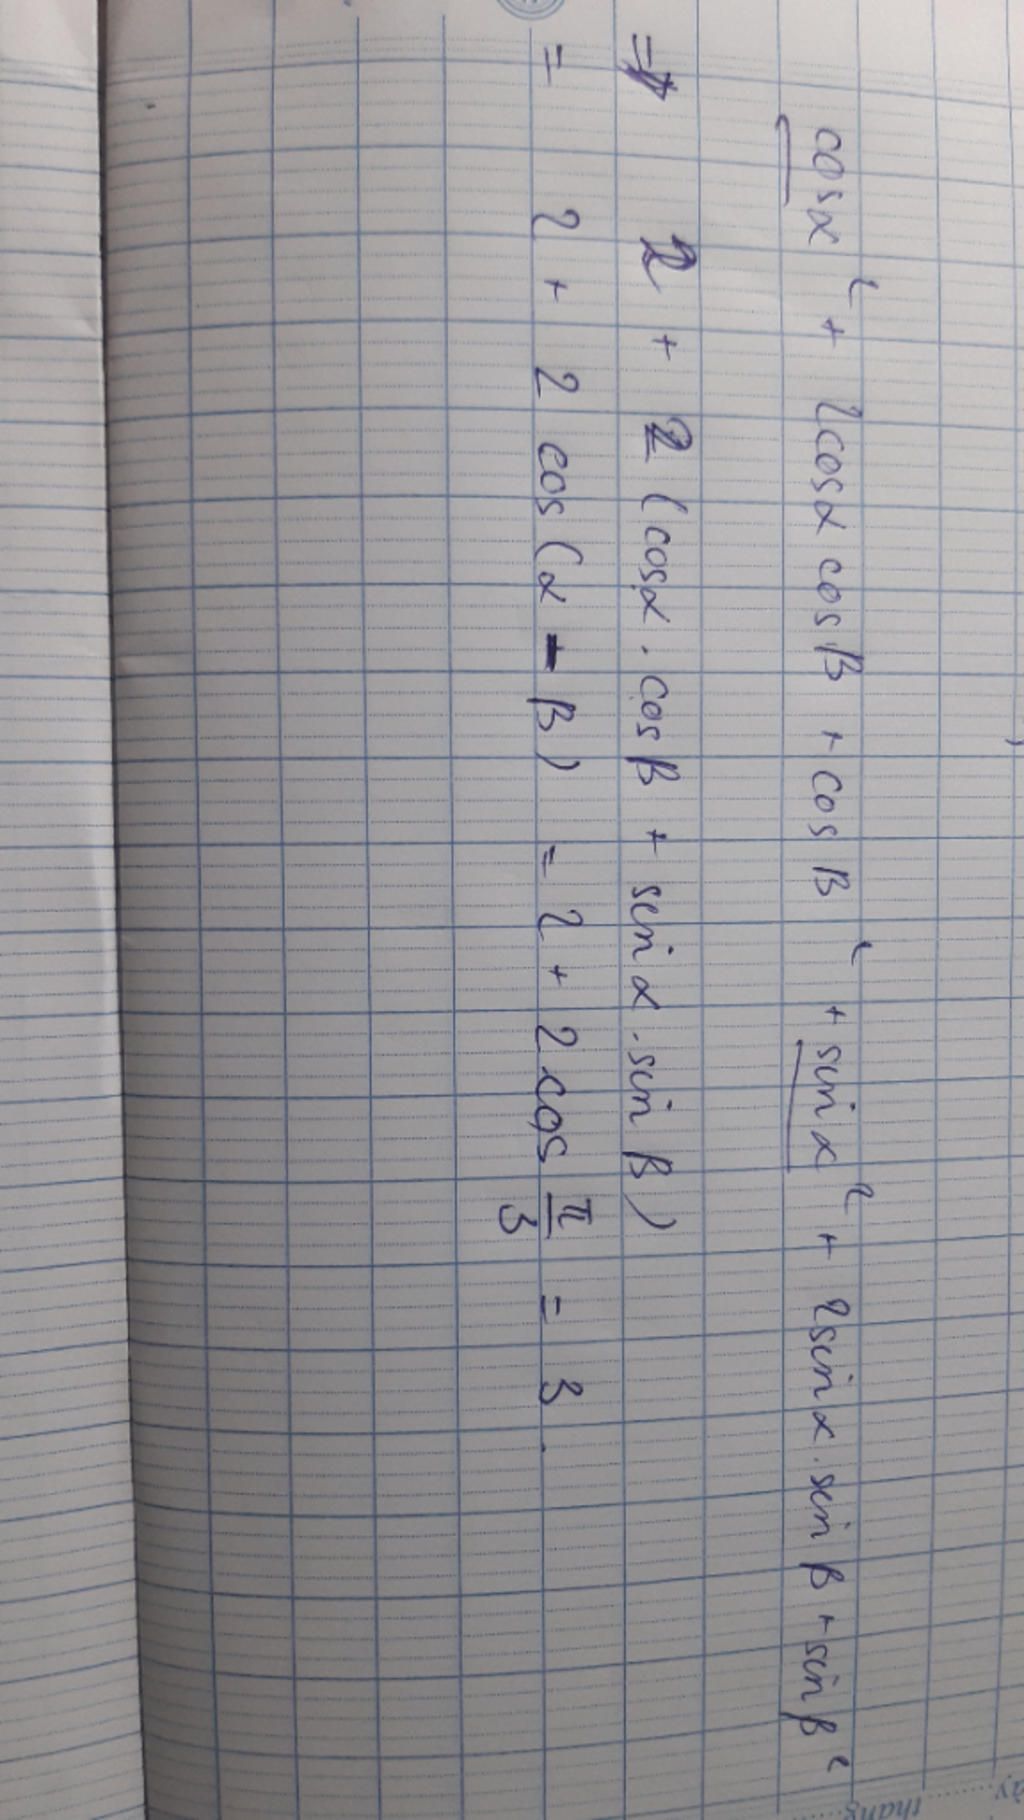 cosα² + 2cosα cosβ + cosβ² + sinα² + 2sinα.sinβ + sinβ²
= 2 + 2 (cosα . cosβ + sinα . sinβ)
= 2 + 2 cos(α - β) = 2 + 2cos π/3 = 3.